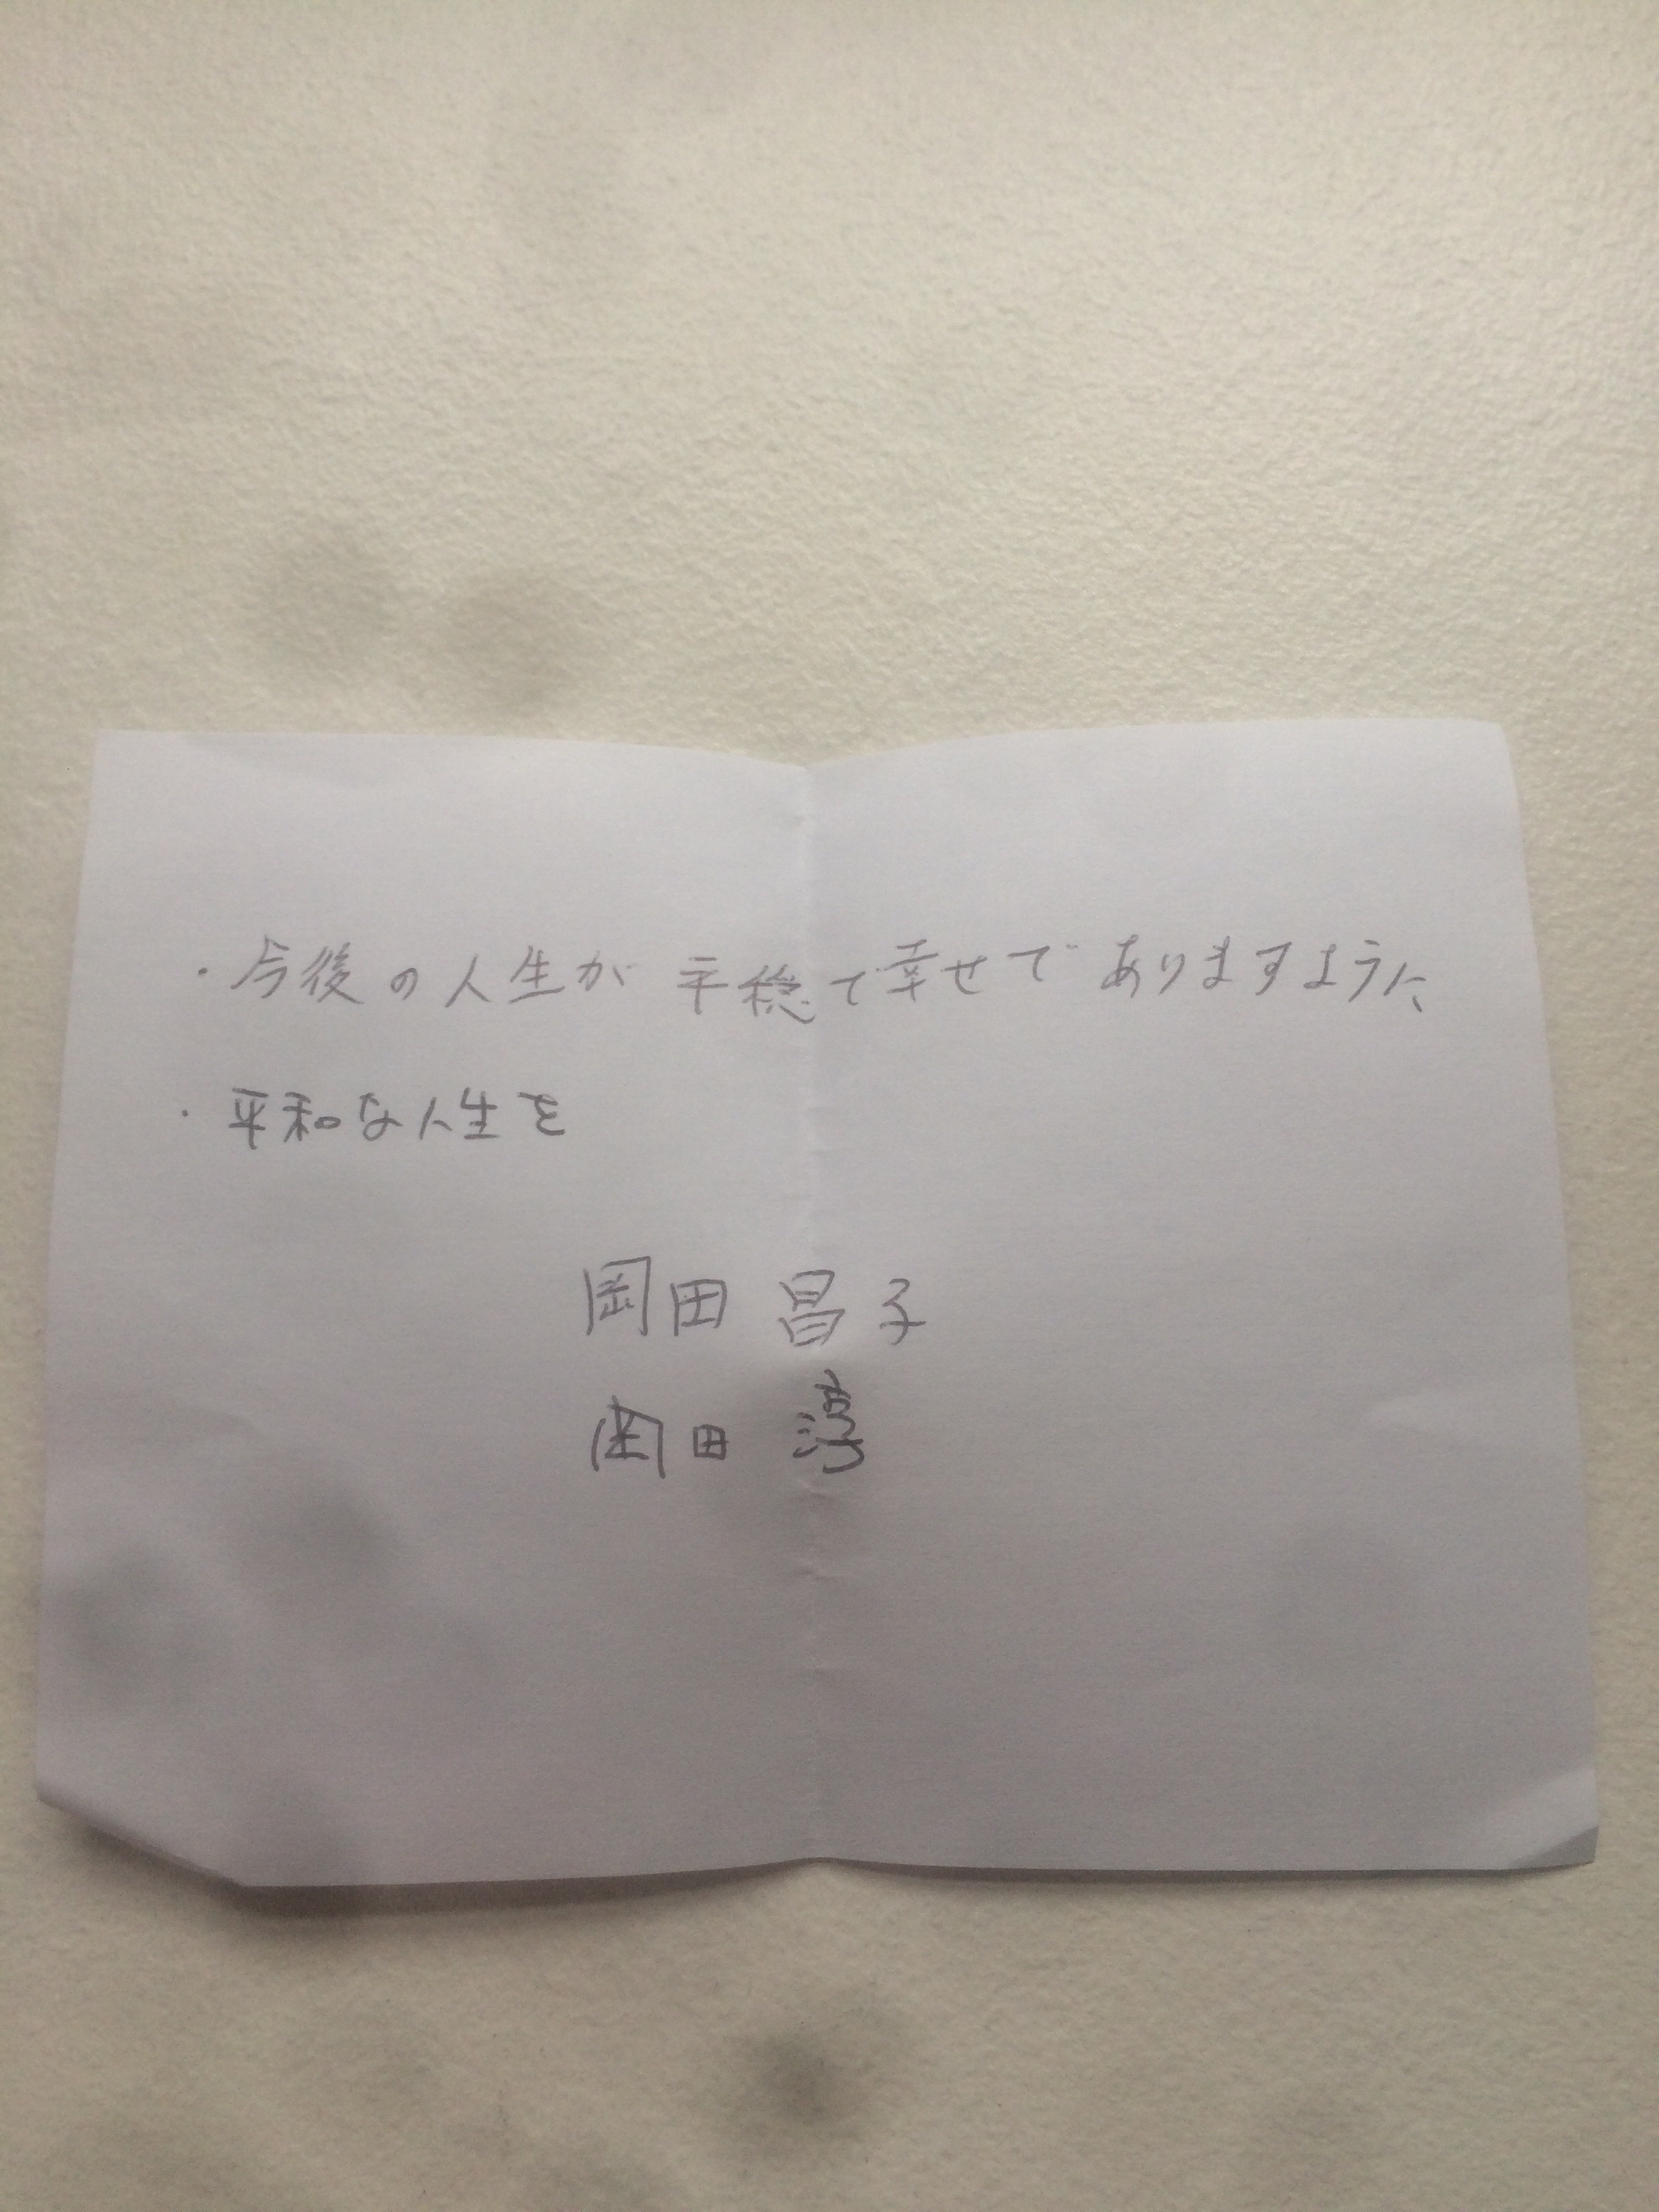 ・今後の人生が平穏で幸せでありますように
・平和な人生を
岡田 昌子
岡田 淳